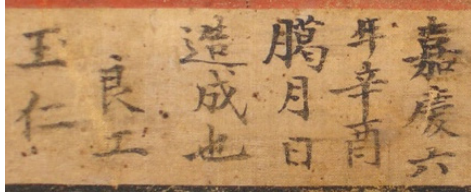 嘉慶六
年辛酉
臈月日
造成也
良工
玉仁